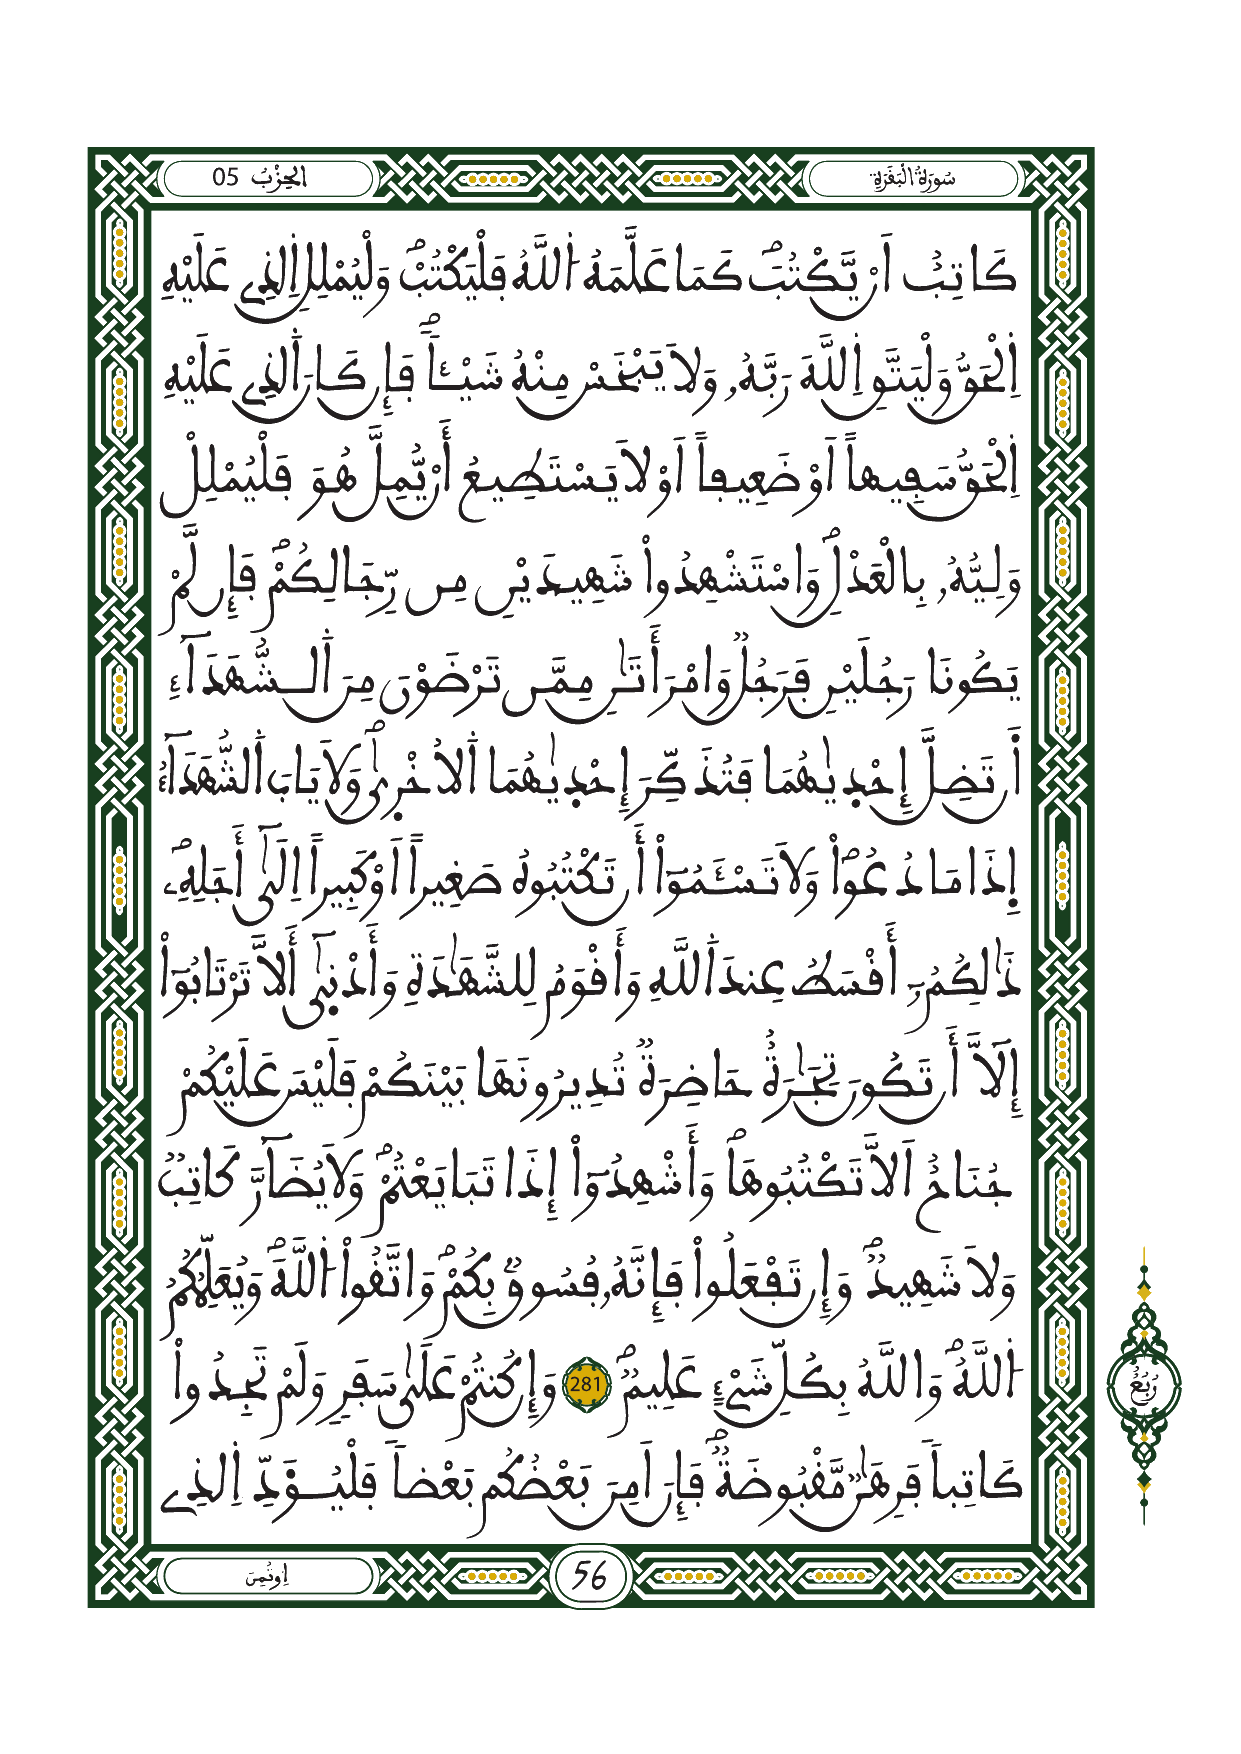 سُورَةُ الْبَقَرَةِ
الحِزْبُ 05
كَاتِبٌ اَنْ يَّكْتُبَ كَمَا عَلَّمَهُ اُ۬للَّهُ فَلْيَكْتُبْ وَلْيُمْلِلِ اِ۬لذِے عَلَيْهِ
اِ۬لْحَقُّ وَلْيَتَّقِ اِ۬للَّهَ رَبَّهُۥ وَلَا يَبْخَسْ مِنْهُ شَيْـٔاًۖ فَإِن كَانَ اَ۬لذِے عَلَيْهِ
اِ۬لْحَقُّ سَفِيهاً اَوْ ضَعِيفاً اَوْ لَا يَسْتَطِيعُ أَنْ يُّمِلَّ هُوَ فَلْيُمْلِلْ
وَلِيُّهُۥ بِالْعَدْلِۖ وَاسْتَشْهِدُواْ شَهِيدَيْنِ مِن رِّجَالِكُمْۖ فَإِن لَّمْ
يَكُونَا رَجُلَيْنِ فَرَجُلٌ وَامْرَأَتَٰنِ مِمَّن تَرْضَوْنَ مِنَ اَ۬لشُّهَدَآءِ
اَ۬ن تَضِلَّ إِحْدٜيٰهُمَا فَتُذَكِّرَ إِحْدٜيٰهُمَا اَ۬لُاخْرٜيٰۖ وَلَا يَابَ اَ۬لشُّهَدَآءُ
اِ۪ذَا مَا دُعُواْۖ وَلَا تَسْـَٔمُوٓاْ أَن تَكْتُبُوهُ صَغِيراً اَوْ كَبِيراً اِلَيٰٓ أَجَلِهِۦۖ
ذَٰلِكُمُۥٓ أَقْسَطُ عِندَ اَ۬للَّهِ وَأَقْوَمُ لِلشَّهَٰدَةِ وَأَدْنٜيٰٓ أَلَّا تَرْتَابُوٓاْ
إِلَّآ أَن تَكُونَ تِجَٰرَةٌ حَاضِرَةٌ تُدِيرُونَهَا بَيْنَكُمْ فَلَيْسَ عَلَيْكُمْ
جُنَاحٌ اَلَّا تَكْتُبُوهَاۖ وَأَشْهِدُوٓاْ إِذَا تَبَايَعْتُمْۖ وَلَا يُضَآرَّ كَاتِبٌ
وَلَا شَهِيدٌۖ وَإِن تَفْعَلُواْ فَإِنَّهُۥ فُسُوقٌۢ بِكُمْۖ وَاتَّقُواْ اُ۬للَّهَۖ وَيُعَلِّمُكُمُ
اُ۬للَّهُۖ وَاللَّهُ بِكُلِّ شَےْءٍ عَلِيمٌۖ 281 وَإِن كُنتُمْ عَلَيٰ سَفَرٍ وَلَمْ تَجِدُواْ
كَاتِباً فَرِهَٰنٌ مَّقْبُوضَةٌۖ فَإِنَ اَمِنَ بَعْضُكُم بَعْضاً فَلْيُؤَدِّ اِ۬لذِے
رُبُعُ
56
اِ۟وتُمِنَ